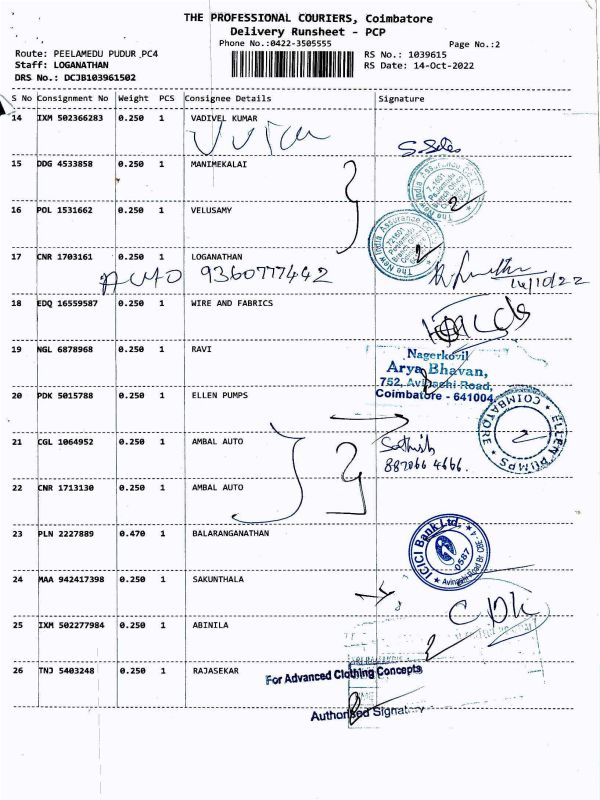 THE PROFESSIONAL COURIERS, Coimbatore
Delivery Runsheet - PCP
Phone No.:0422-3505555
Page No.:2
Route: PEELAMEDU PUDUR PC4
RS No.: 1039615
Staff: LOGANATHAN
RS Date: 14-Oct-2022
DRS No.: DCJB103961502
S No Consignment No Weight PCS Consignee Details Signature
14 IXM 502366283 0.250 1 VADIVEL KUMAR
15 DDG 4533858 0.250 1 MANIMEKALAI
The New India Assurance Co
16 POL 1531662 0.250 1 VELUSAMY
The New India Assurance Co
17 CNR 1703161 0.250 1 LOGANATHAN
AUTO 9360777442
14/10/22
18 EDQ 16559587 0.250 1 WIRE AND FABRICS
19 NGL 6878968 0.250 1 RAVI
Nagerkovil
Arya Bhavan,
752, Avinashi Road,
Coimbatore - 641004
20 PDK 5015788 0.250 1 ELLEN PUMPS
ELLEN PUMPS * COIMBATORE *
21 CGL 1064952 0.250 1 AMBAL AUTO
Sathish
887066 4666.
22 CNR 1713130 0.250 1 AMBAL AUTO
23 PLN 2227889 0.470 1 BALARANGANATHAN
ICICI Bank Ltd. * Avinashi Road Br CBE - 4
0587
24 MAA 942417398 0.250 1 SAKUNTHALA
25 IXM 502277984 0.250 1 ABINILA
26 TNJ 5403248 0.250 1 RAJASEKAR
For Advanced Clothing Concepts
Authorised Signatory